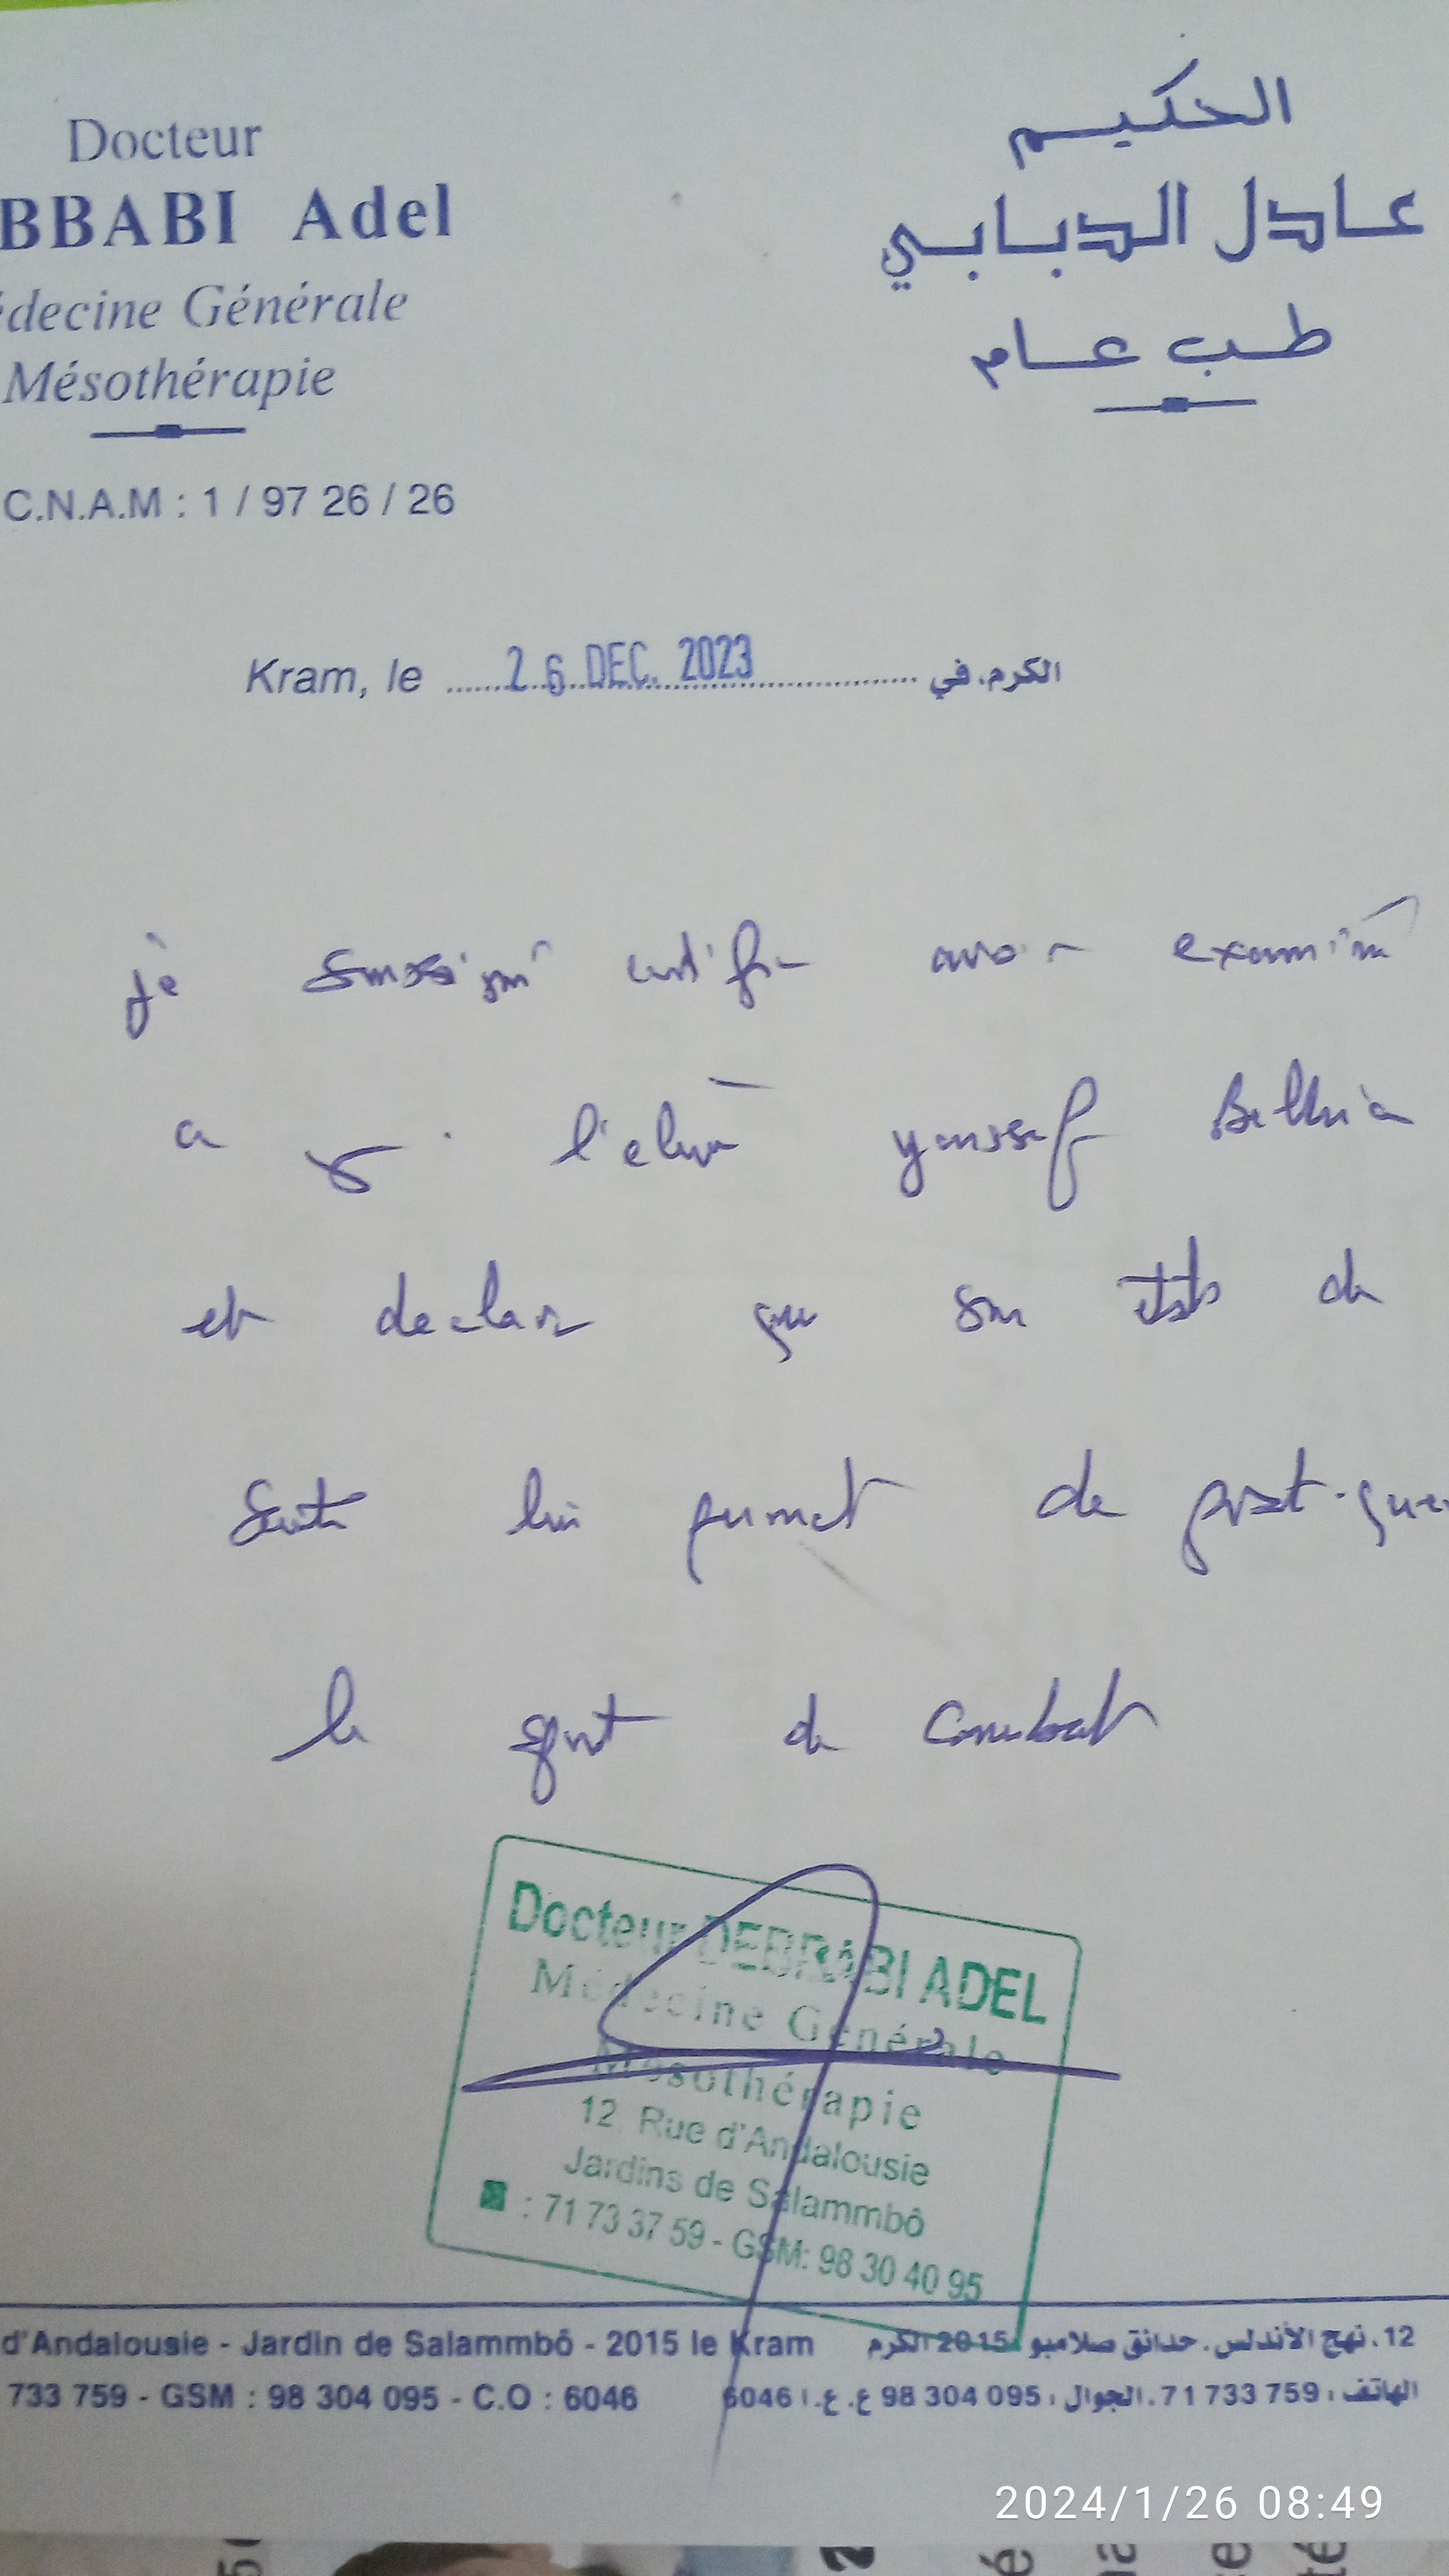 Docteur
BBABI Adel
édecine Générale
Mésothérapie
C.N.A.M : 1 / 97 26 / 26
الحكيم
عادل الدبابي
طب عام
Kram, le 26 DEC. 2023 الكرم، في
je soussigné certifie avoir examiné
l'elève youssef
et declare que son etat de
santé lui permet de pratiquer
le sport de combat
Docteur DEBBABI ADEL
Médecine Générale
Mésothérapie
12 Rue d'Andalousie
Jardins de Salammbô
: 71 73 37 59 - GSM: 98 30 40 95
d'Andalousie - Jardin de Salammbô - 2015 le Kram
12، نهج الأندلس، حدائق صلامبو 2015 الكرم
733 759 - GSM : 98 304 095 - C.O : 6046
الهاتف : 71 733 759، الجوال : 98 304 095 ع. ع. : 6046
2024/1/26 08:49